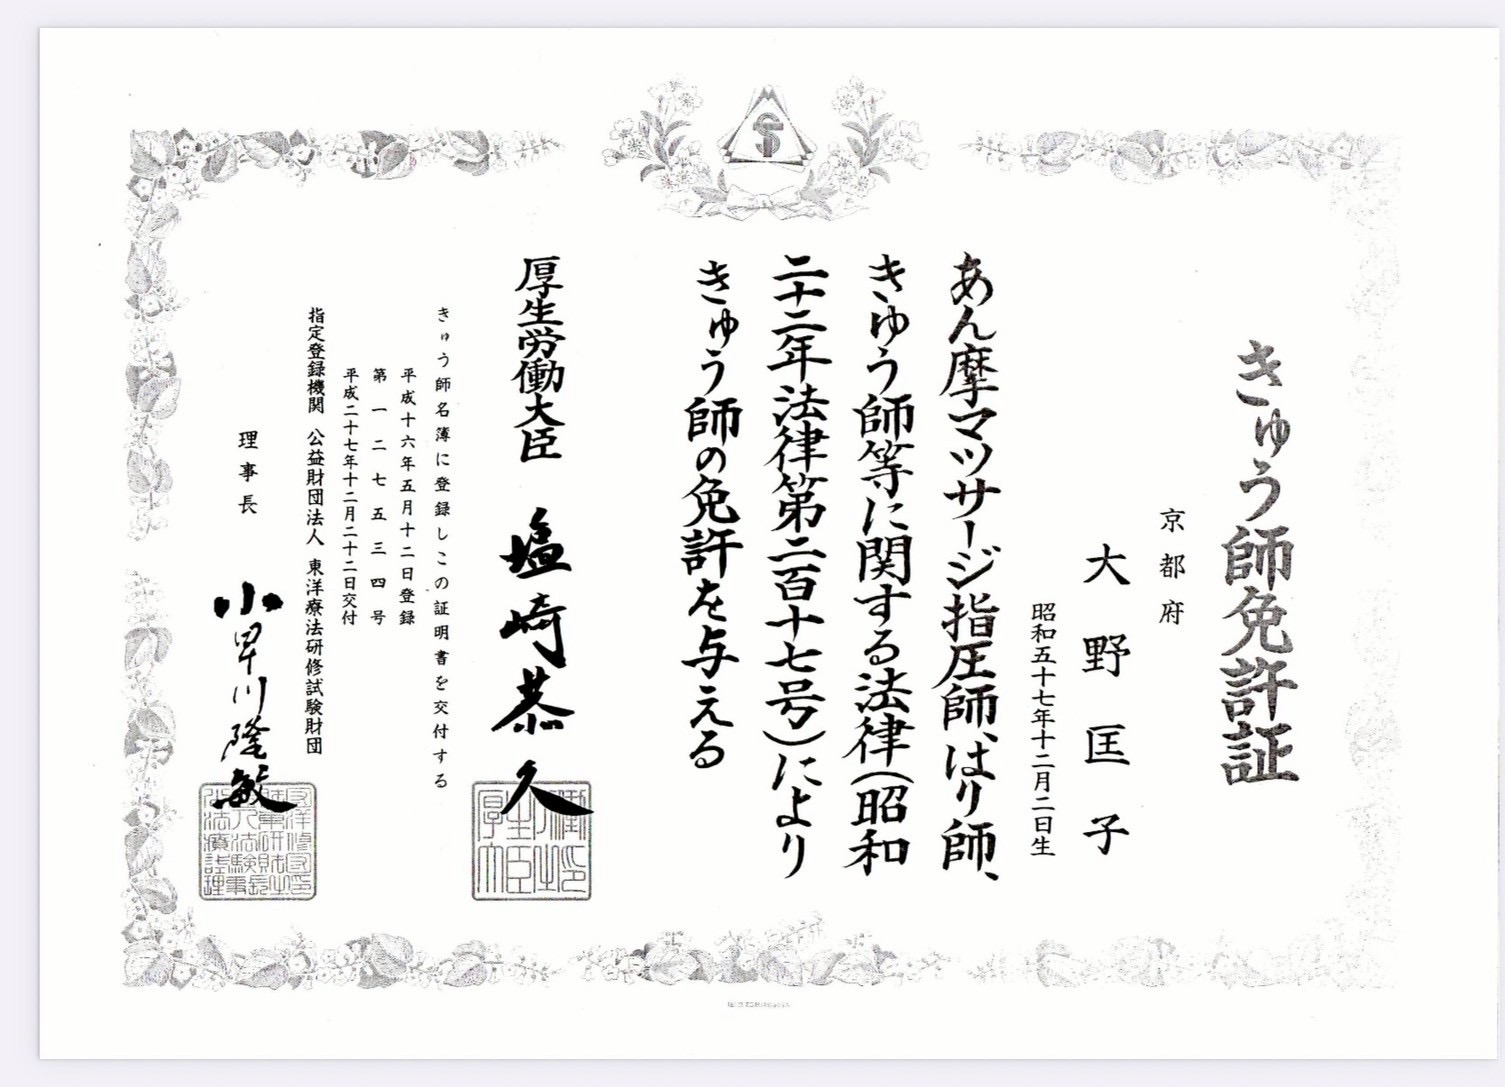 きゅう師免許証
京都府
大野匡子
昭和五十七年十二月二日生
あん摩マツサージ指圧師、はり師、
きゆう師等に関する法律(昭和
二十二年法律第二百十七号)により
きゅう師の免許を与える
厚生労働大臣 塩崎恭久
きゅう師名簿に登録しこの証明書を交付する
平成十六年五月十二日登録
第一二七五三四号
平成二十七年十二月二十二日交付
指定登録機関 公益財団法人 東洋療法研修試験財団
理事長 小早川隆敏